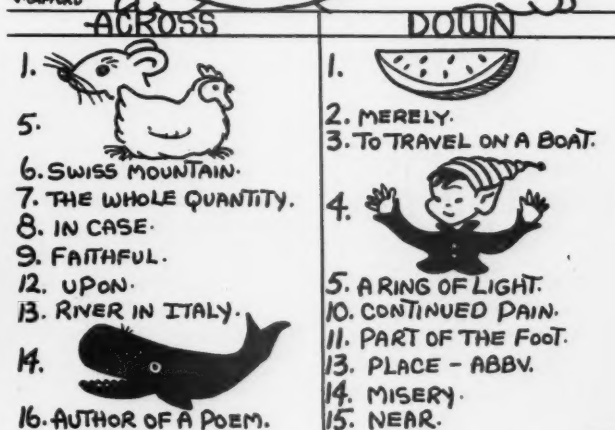 ACROSS
1.
5.
6. SWISS MOUNTAIN.
7. THE WHOLE QUANTITY.
8. IN CASE.
9. FAITHFUL.
12. UPON.
13. RIVER IN ITALY.
14.
16. AUTHOR OF A POEM.
DOWN
1.
2. MERELY.
3. TO TRAVEL ON A BOAT.
4.
5. A RING OF LIGHT.
10. CONTINUED PAIN.
11. PART OF THE FOOT.
13. PLACE - ABBV.
14. MISERY.
15. NEAR.